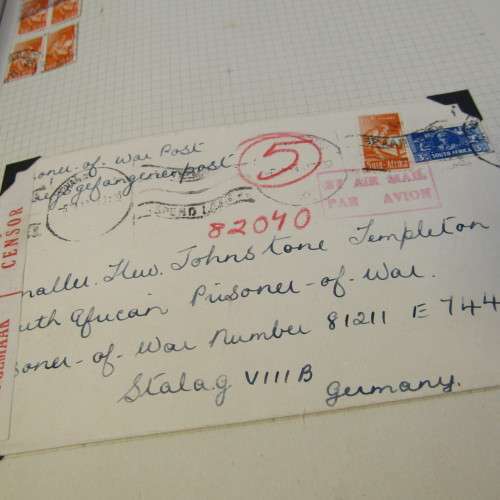 CENSOR
oner-of War Post
Kriegsgefangenenpost
5
SOUTH AFRICA
BY AIR MAIL
PAR AVION
82040
naller. Hew. Johnstone Templeton
uth African Prisoner-of-War.
soner-of-War Number 81211 E 744
Stalag VIIIB
Germany.